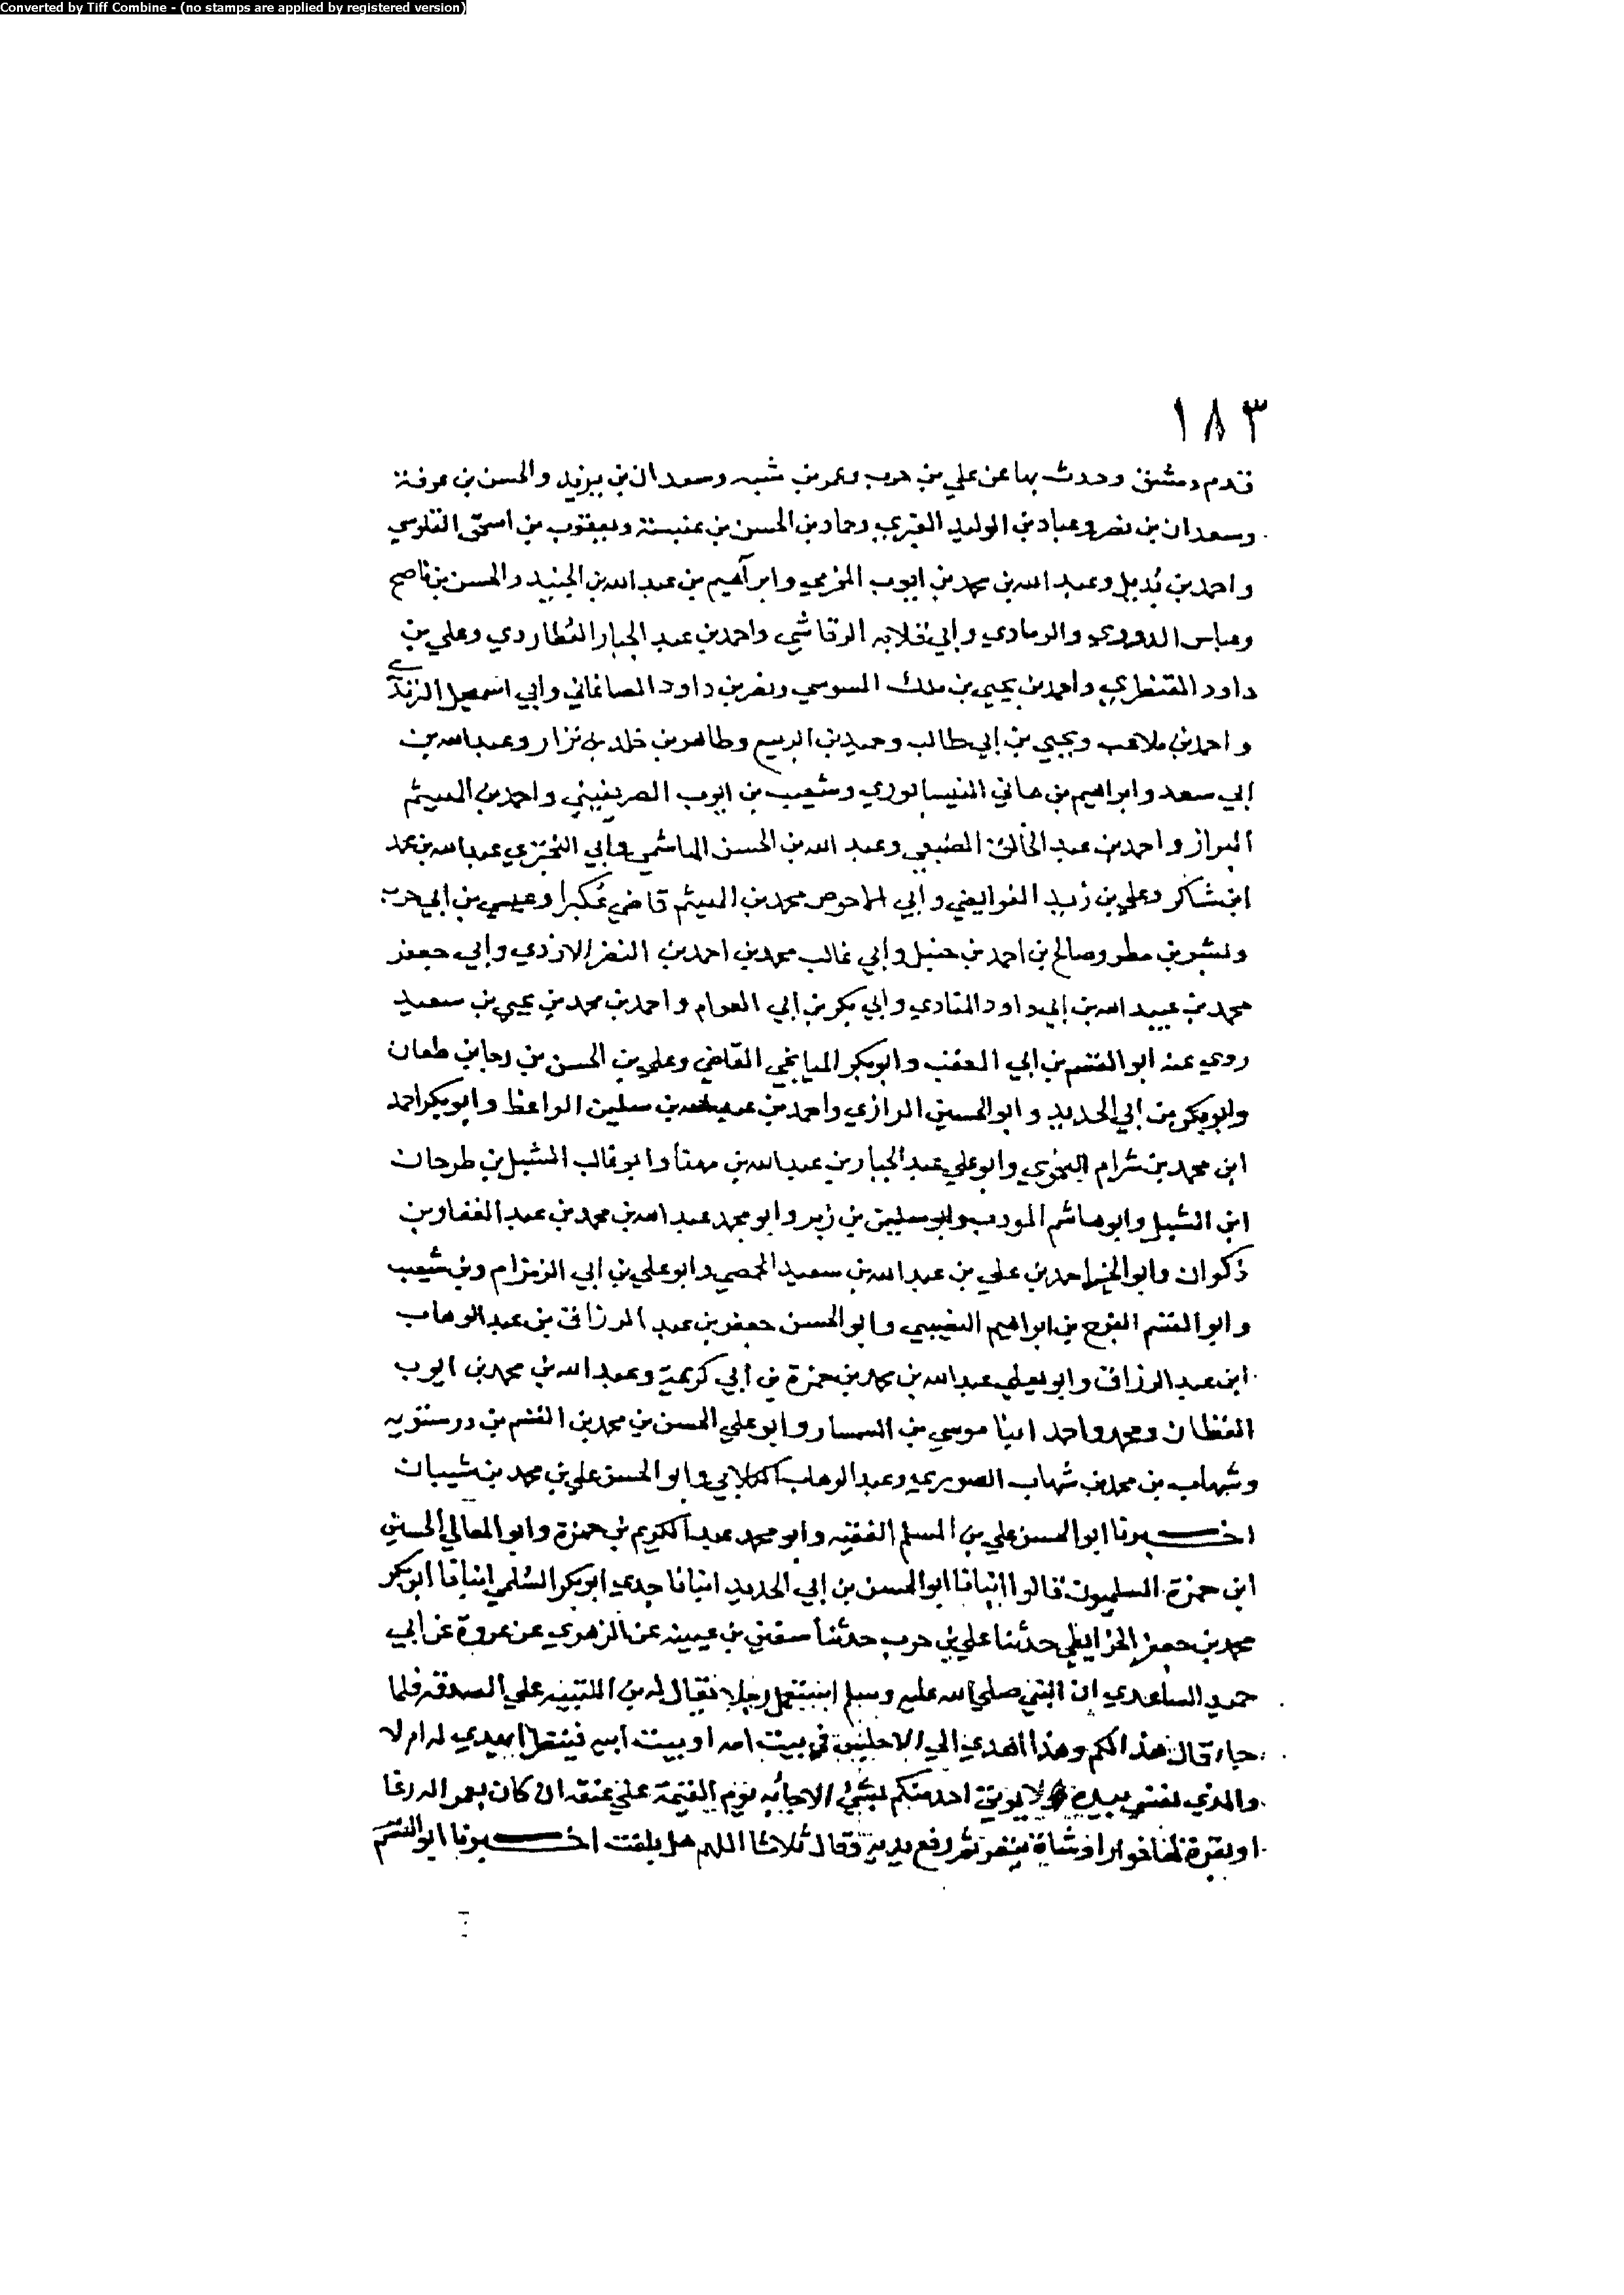 Converted by Tiff Combine - (no stamps are applied by registered version)
١٨٣
قدم دمشق وحدث بها عن علي بن حرب وعمر بن شبه وسعدان بن يزيد والحسن بن عرفة
وسعدان بن نصر وعباد بن الوليد الغبري وحماد بن الحسن بن عنبسة ويعقوب بن اسحق القلوسي
واحمد بن بُديل وعبد الله بن محمد بن ايوب المخرمي وابراهيم بن عبد الله بن الجنيد والحسن بن ناصح
وعباس الدوري والرمادي وابي قلابه الرقاشي واحمد بن عبد الجبار العُطاردي وعلي بن
داود القنطري واحمد بن يحيي بن ملك السوسي ونصر بن داود الصاغاني وابي اسمعيل الترمذي
واحمد بن ملاعب ويحيي بن ابي طالب وحميد بن الربيع وطاهر بن خلد بن نزار وعبد الله بن
ابي سعد وابراهيم بن هاني النيسابوري وشعيب بن ايوب الصريفيني واحمد بن الهيثم
البزاز واحمد بن عبد الخالق الضبعي وعبد الله بن الحسن الهاشمي وابي البختري عبد الله بن محمد
ابن شاكر وعلي بن زيد الفرايضي وابي الاحوص محمد بن الهيثم قاضي عُكبرا وعيسي بن ابي حرب
وبشر بن مطر وصالح بن احمد بن حنبل وابي غالب محمد بن احمد بن النضر الازدي وابي جعفر
محمد بن عبيد الله بن ابي داود المنادي وابي بكر بن ابي العوام واحمد بن محمد بن يحيي بن سعيد
روي عنه ابو القسم بن ابي العقب وابو بكر الميانجي القاضي وعلي بن الحسن بن رجا بن طعان
وابو بكر بن ابي الحديد وابو الحسين الرازي واحمد بن عبد الله بن سليمن الواعظ وابو بكر احمد
ابن محمد بن شرام النحوي وابو علي عبد الجبار بن عبد الله بن مهنا وابو غالب الشبل بن طرحان
ابن الشبل وابو هاشم المودب وابو سليمن بن زبر وابو محمد عبد الله بن محمد بن عبد الغفار بن
ذكوان وابو الخير احمد بن علي بن عبد الله بن سعيد الحمصي وابو علي بن ابي الزمزام وبن شعيب
وابو القسم الفرج بن ابراهيم النصيبي وابو الحسن جعفر بن عبد الرزاق بن عبد الوهاب
ابن عبد الرزاق وابو يعلي عبد الله بن محمد بن حمزة بن ابي كريمة وعبد الله بن محمد بن ايوب
القطان ومحمد واحمد ابنا موسي بن السمسار وابو علي الحسن بن محمد بن القسم بن درستويه
وشهاب بن محمد بن شهاب الصوري وعبد الوهاب الكلابي وابو الحسن علي بن محمد بن شيبان
اخـــبرنا ابو الحسن علي بن المسلم الفقيه وابو محمد عبد الكريم بن حمزة وابو المعالي الحسين
ابن حمزة السلميون قالوا انبانا ابو الحسن بن ابي الحديد انبانا جدي ابو بكر السُلمي انبانا ابو بكر
محمد بن جعفر الخرايطي حدثنا علي بن حرب حدثنا سفين بن عيينه عن الزهري عن عروة عن ابي
حميد الساعدي ان النبي صلي الله عليه وسلم استعمل رجلا يقال له بن اللتبيه علي الصدقه فلما
جاء قال هذا لكم وهذا اهدي الي الا جلس في بيت امه او بيت ابيه فينظر ايهدي له ام لا
والذي نفسي بيده لا يوتي احد منكم بشي الا جا به يوم القيمة علي عنقه ان كان بعير اله رغا
او بقرة لها خوار او شاة تيعر ثم رفع يديه وقال ثلاثا اللهم هل بلغت اخـــبرنا ابو القسم